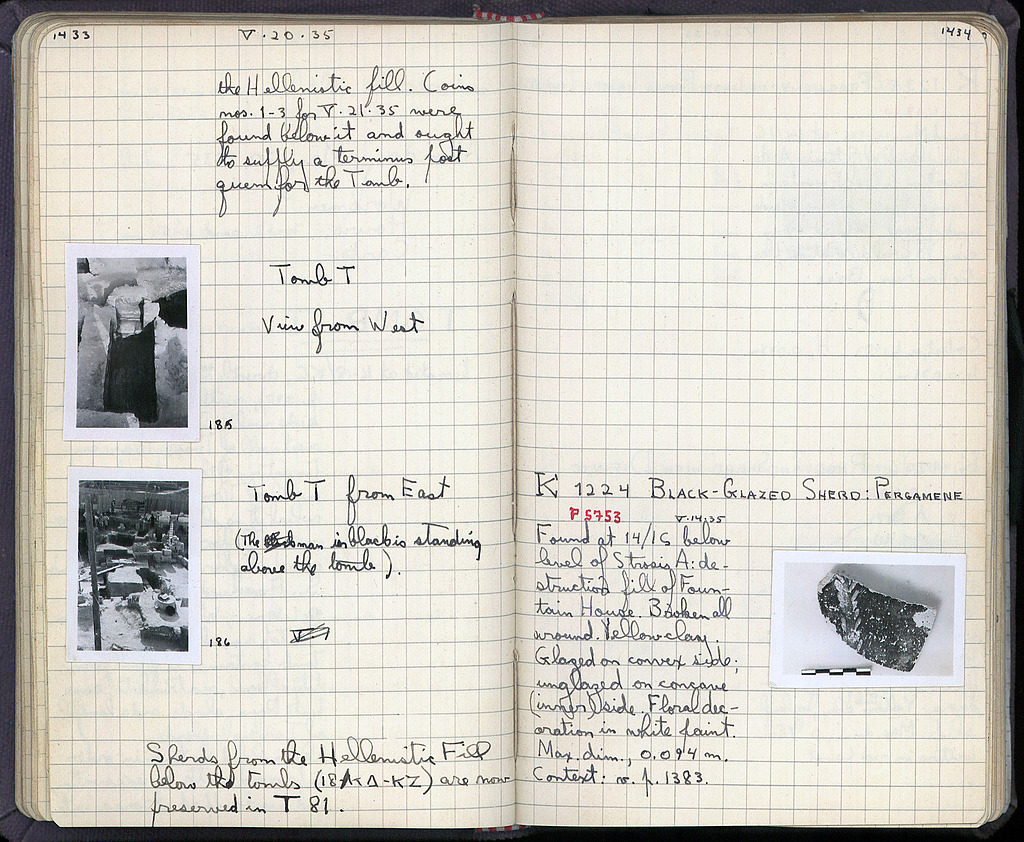 1433
V·20·35
the Hellenistic fill. Coins
nos. 1-3 for V·21·35 were
found below it and ought
to supply a terminus post
quem for the Tomb.
Tomb T
View from West
185
Tomb T from East
(The man in black is standing
above the tomb).
186
Sherds from the Hellenistic Fill
below the tombs (18/ΚΔ-ΚΖ) are now
preserved in T 81.
1434
K 1224 BLACK-GLAZED SHERD: PERGAMENE
P 5753
V·14·35
Found at 14/ΙϚ below
level of Strosis A: de-
struction fill of Foun-
tain House. Broken all
around. Yellow clay.
Glazed on convex side;
unglazed on concave
(inner) side. Floral dec-
oration in white paint.
Max. dim., 0.094 m.
Context: v. p. 1383.